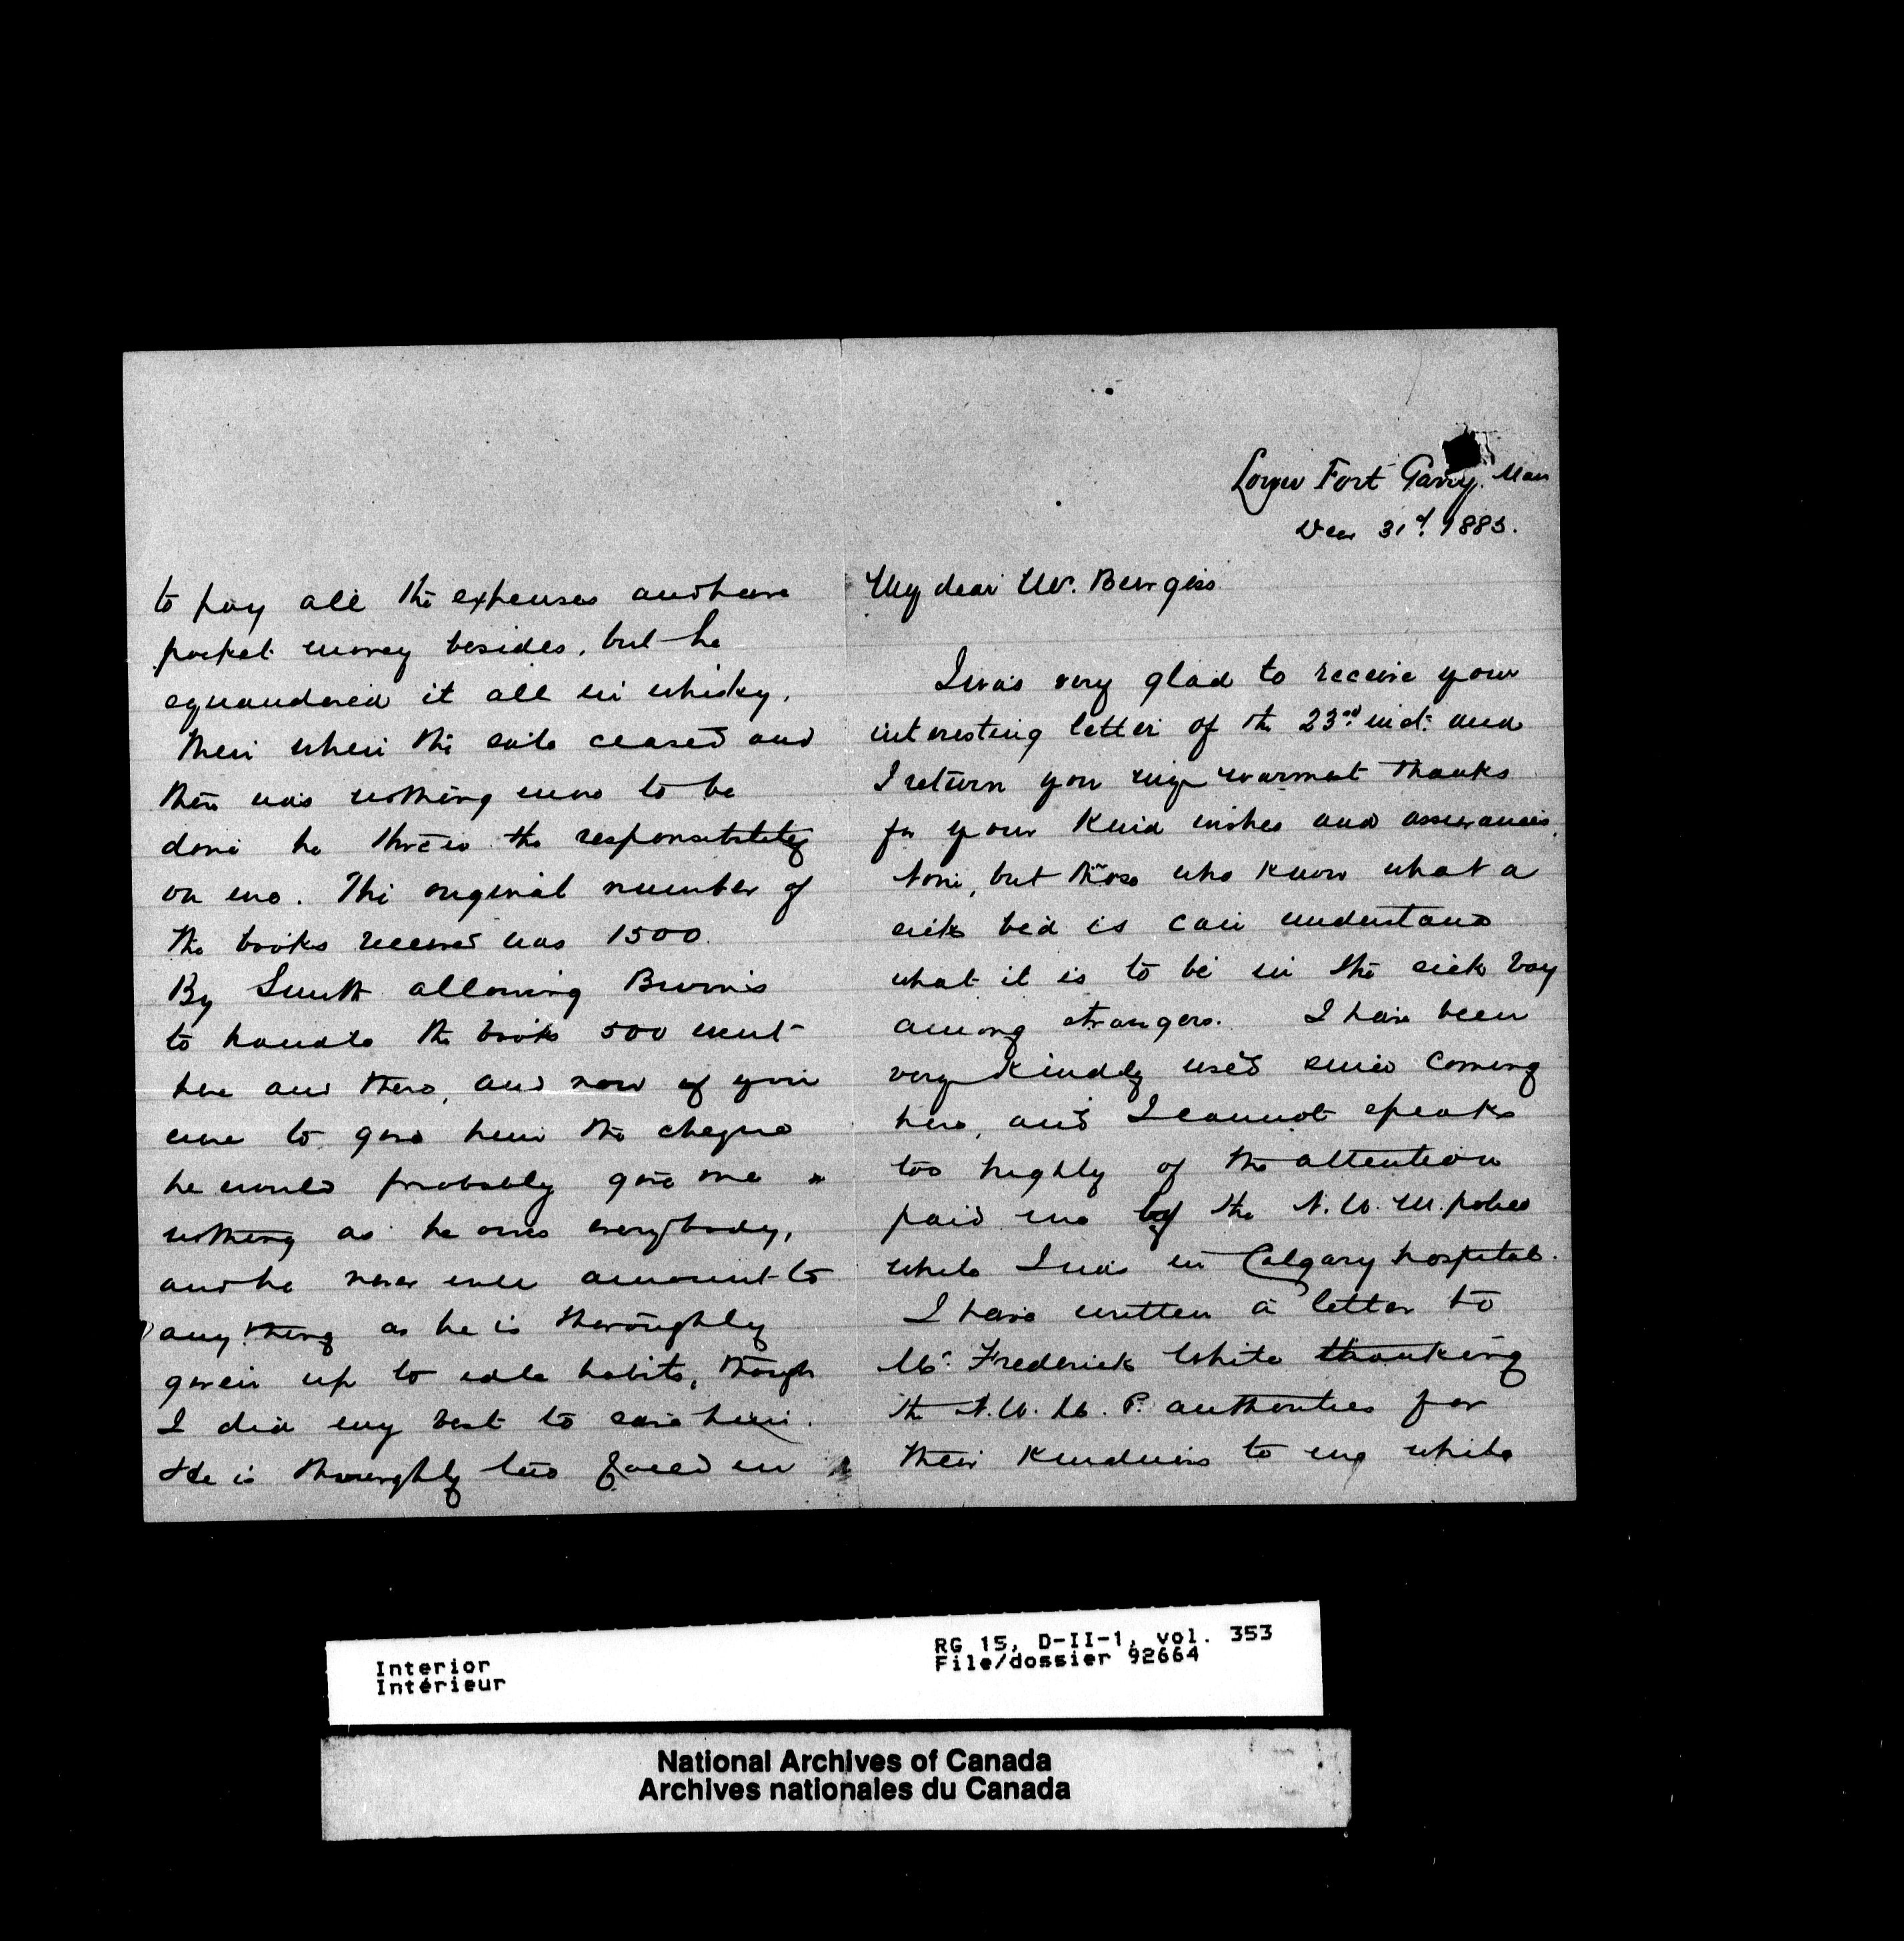 to pay all the expenses and have
pocket money besides, but he
squandered it all in whisky.
Then when the sale ceased and
there was nothing more to be
done he threw the responsibility
on me. The original number of
the books received was 1500.
By Smith allowing Burris
to handle the books 500 went
here and there, and now if you
were to give him the cheque
he would probably give me
nothing as he owes everybody,
and he never will amount to
anything as he is thoroughly
given up to idle habits, though
I did my best to save him.
He is thoroughly two faced in
Lower Fort Garry. Man
Dec 31st 1885.
My dear Mr. Burgess
I was very glad to receive your
interesting letter of the 23rd inst: and
I return you my warmest thanks
for your kind wishes and assurances.
None, but those who know what a
sick bed is can understand
what it is to be in the sick bay
among strangers. I have been
very kindly used since coming
here, and I cannot speak
too highly of the attention
paid me by the N. W. M. police
while I was in Calgary hospital.
I have written a letter to
Mr. Frederick White thanking
the N. W. M. P. authorities for
their kindness to me while
Interior
Intérieur
RG 15, D-II-1, vol. 353
File/dossier 92664
National Archives of Canada
Archives nationales du Canada